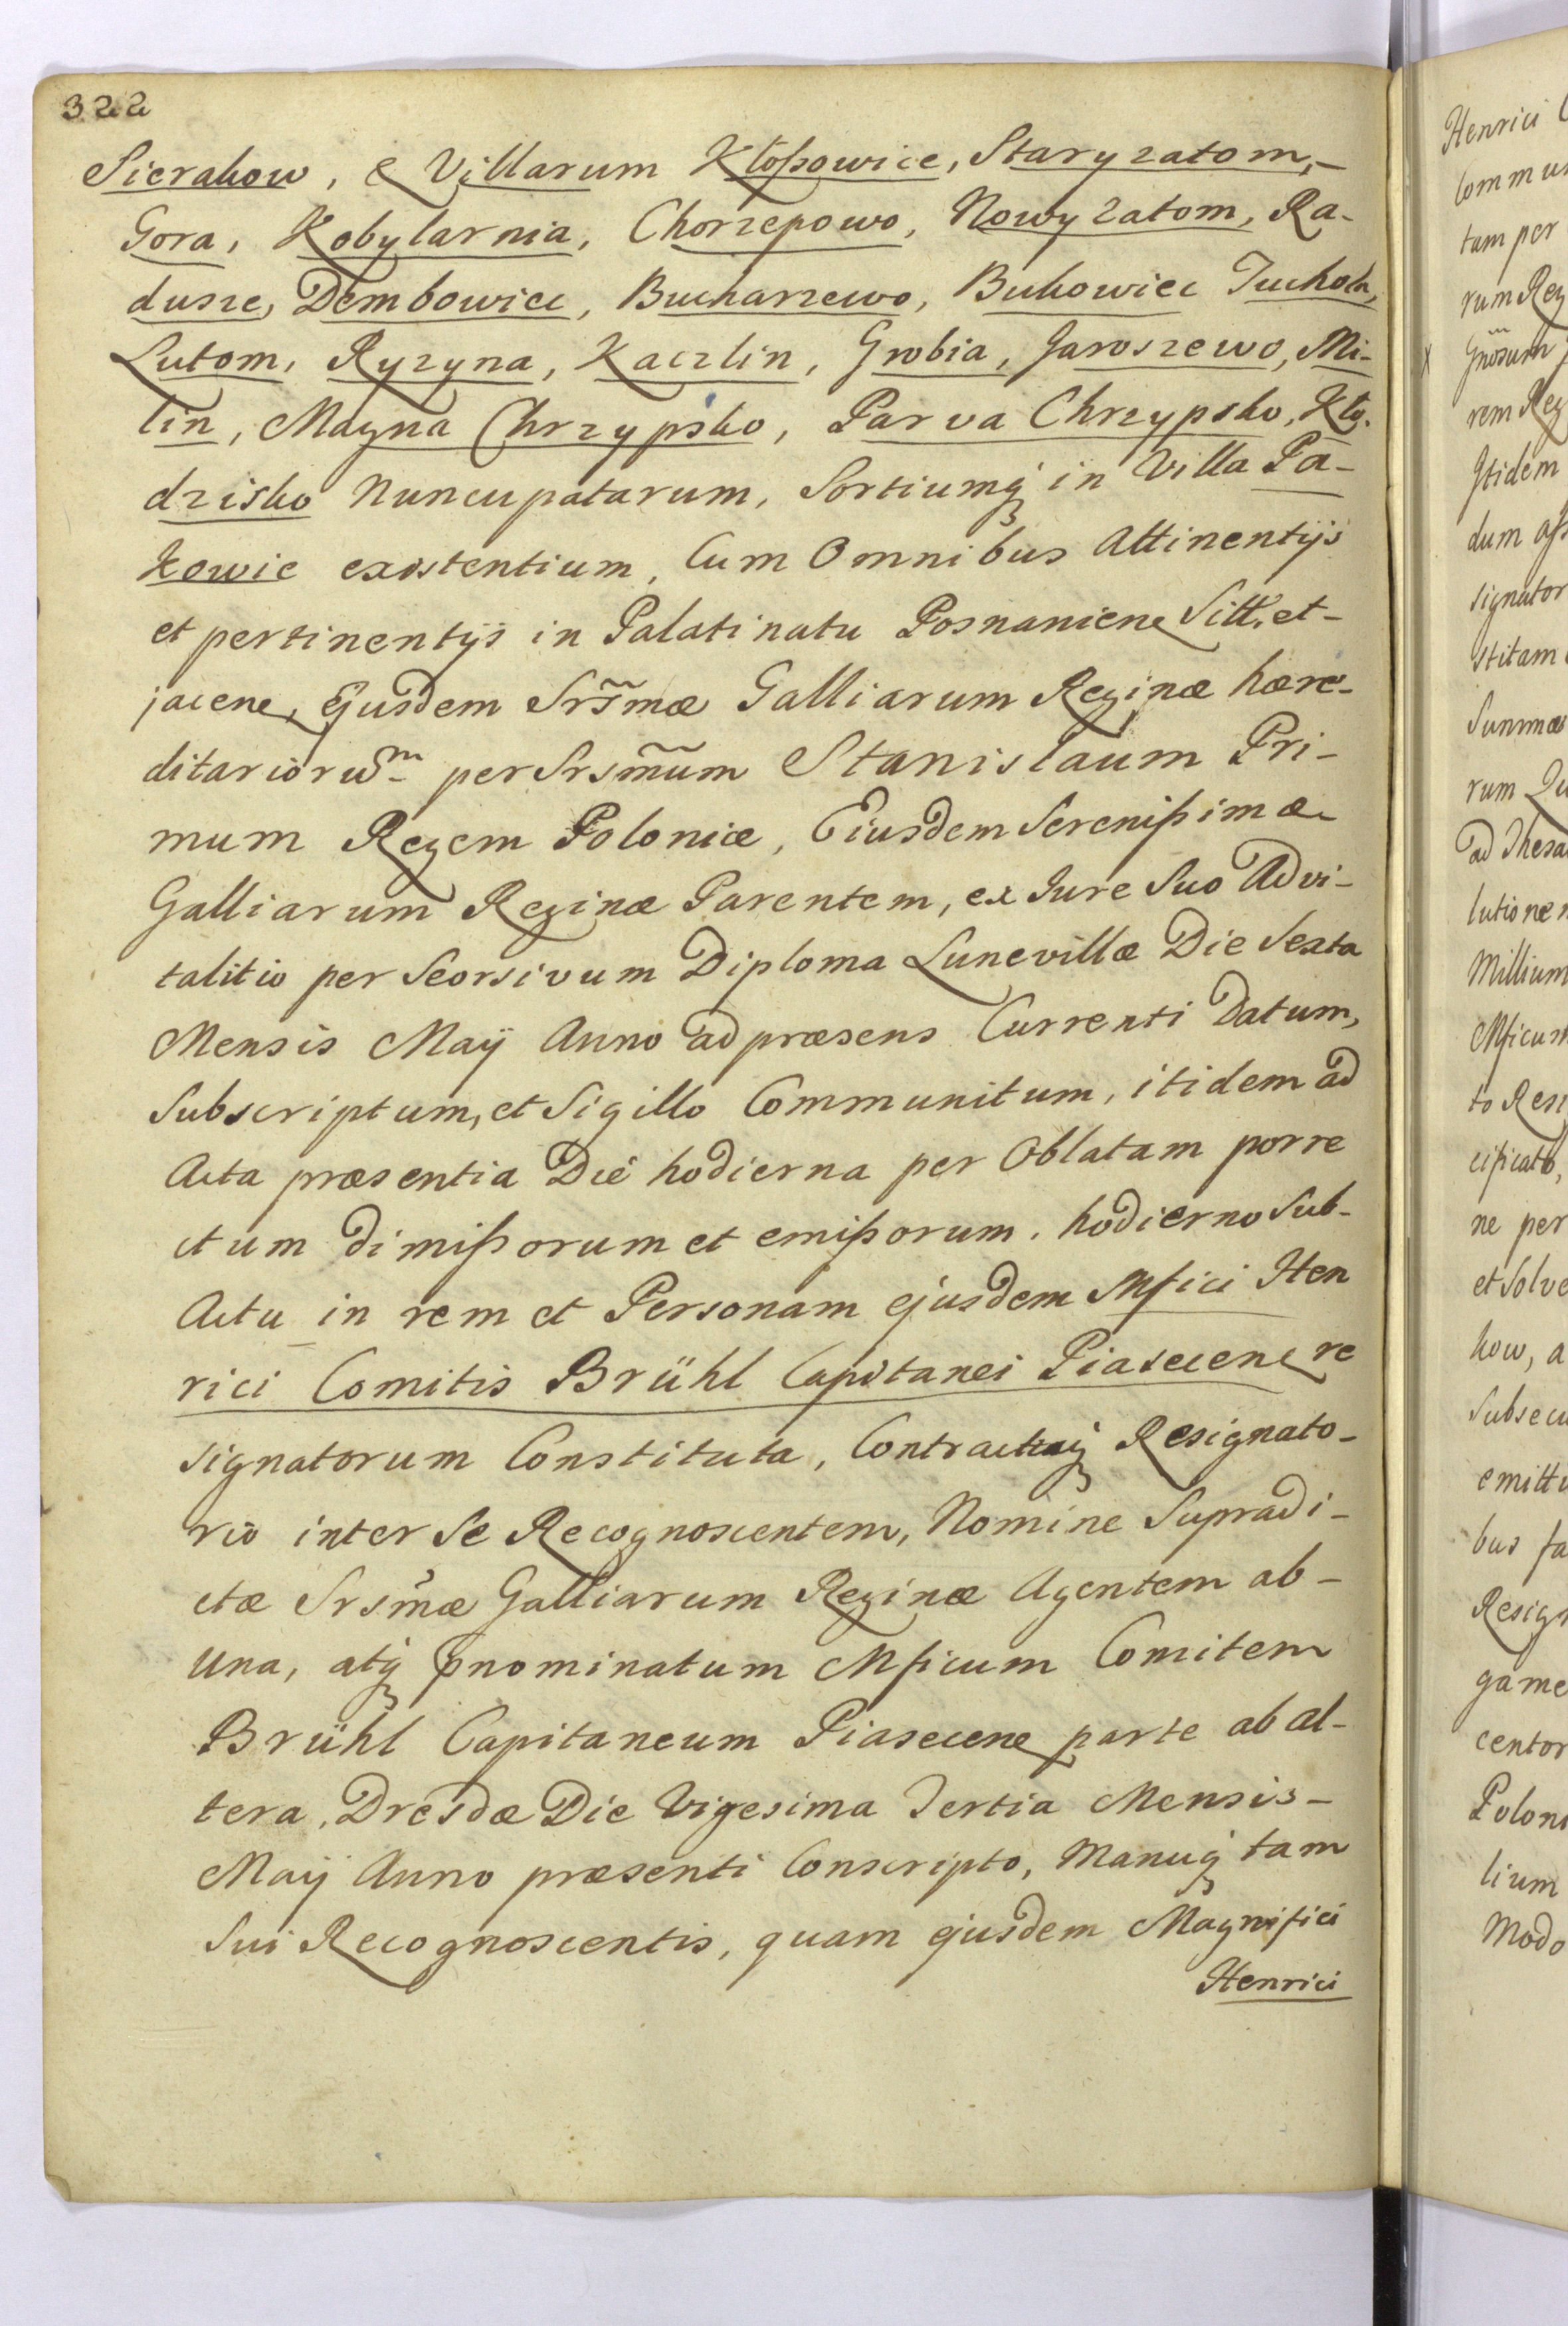 322
Sierakow, & Villarum Kłoßowice, Stary zatom,-
Gora, Kobylarnia, Chorzepowo, Nowy Zatom, Ra-
dusze, Dembowiec, Bucharzewo, Bukowiec Tuchola,
Lutom, Ryzyna, Kaczlin, Grobia, Jaroszewo, Mi-
lin, Magna Chrzypsko, Parva Chrzypsko, Kło-
dzisko Nuncupatarum, Sortiumq in Villa Pa-
kowie existentium, Cum Omnibus Attinentijs
et pertinentijs in Palatinatu Posnaniene Sitt. et-
jacene, Ejusdem Srsmæ Galliarum Reginæ hære-
ditariorum per Srsmum Stanislaum Pri-
mum Regem Poloniæ, Eiusdem Serenißimæ
Galliarum Reginæ Parentem, ex Jure Suo Advi-
talitio per Seorsivum Diploma Lunevillæ Die Sexta
Mensis Maÿ Anno ad præsens Currenti Datum,
Subscriptum, et Sigillo Communitum, itidem ad
Acta præsentia Die hodierna per Oblatam porre
ctum dimißorum et emißorum, hodierno Sub-
Actu in rem et Personam ejusdem Mfici Hen
rici Comitis Brühl Capitanei Piasecene re
signatorum Constituta, Contractuq Resignato-
rio inter Se Recognoscentem, Nomine Supradi-
ctæ Srsmæ Galliarum Reginæ Agentem ab-
una, atq pnominatum Mficum Comitem
Brühl Capitaneum Piasecene parte ab al-
tera, Dresdæ Die Vigesima Tertia Mensis-
Maÿ Anno præsenti Conscripto, Manuq tam
Sui Recognoscentis, quam ejusdem Magnifici
Henrici
Henrici
Commu
tam per
rum Reg
x Gnosum
rem Reg
Itidem
dum
signator
stitam
Summæ
rum
ad Thesa
lutionem
Millium
Mficum
to Resi
cificato,
ne per
et Solve
kow, a
Subsecu
emittu
bus fa
Resign
game
centor
Poloni
lium
Modo